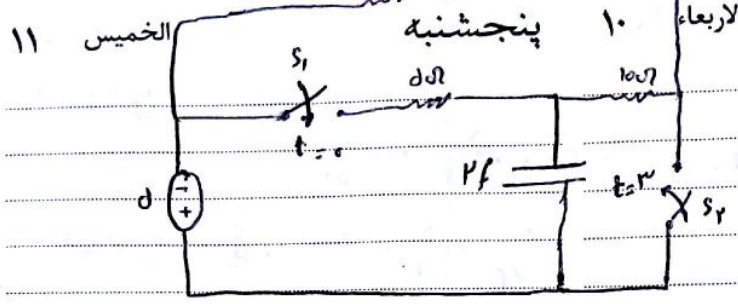 الاربعاء ۱۰ پنجشنبه الخميس ۱۱
S₁ ۵Ω ۱۰Ω
t=۰
۲f t=۳ S₂
۵ - +